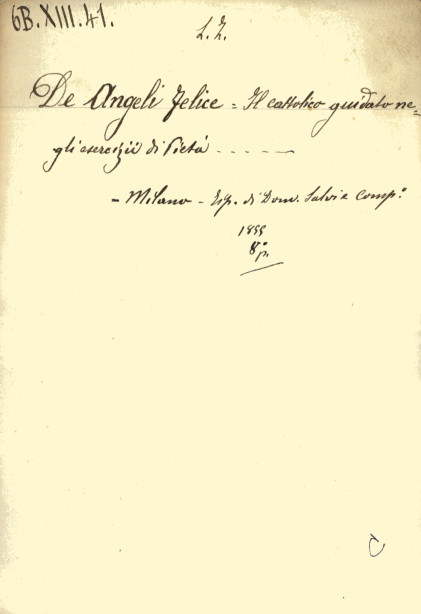 6B.XIII.41.
L. Z.
De Angeli Felice = Il cattolico guidato ne=
gli esercizii di Pietà - - - - -
- Milano - Tip. di Dom. Salvi e Comp.º
1855
8º p.
C